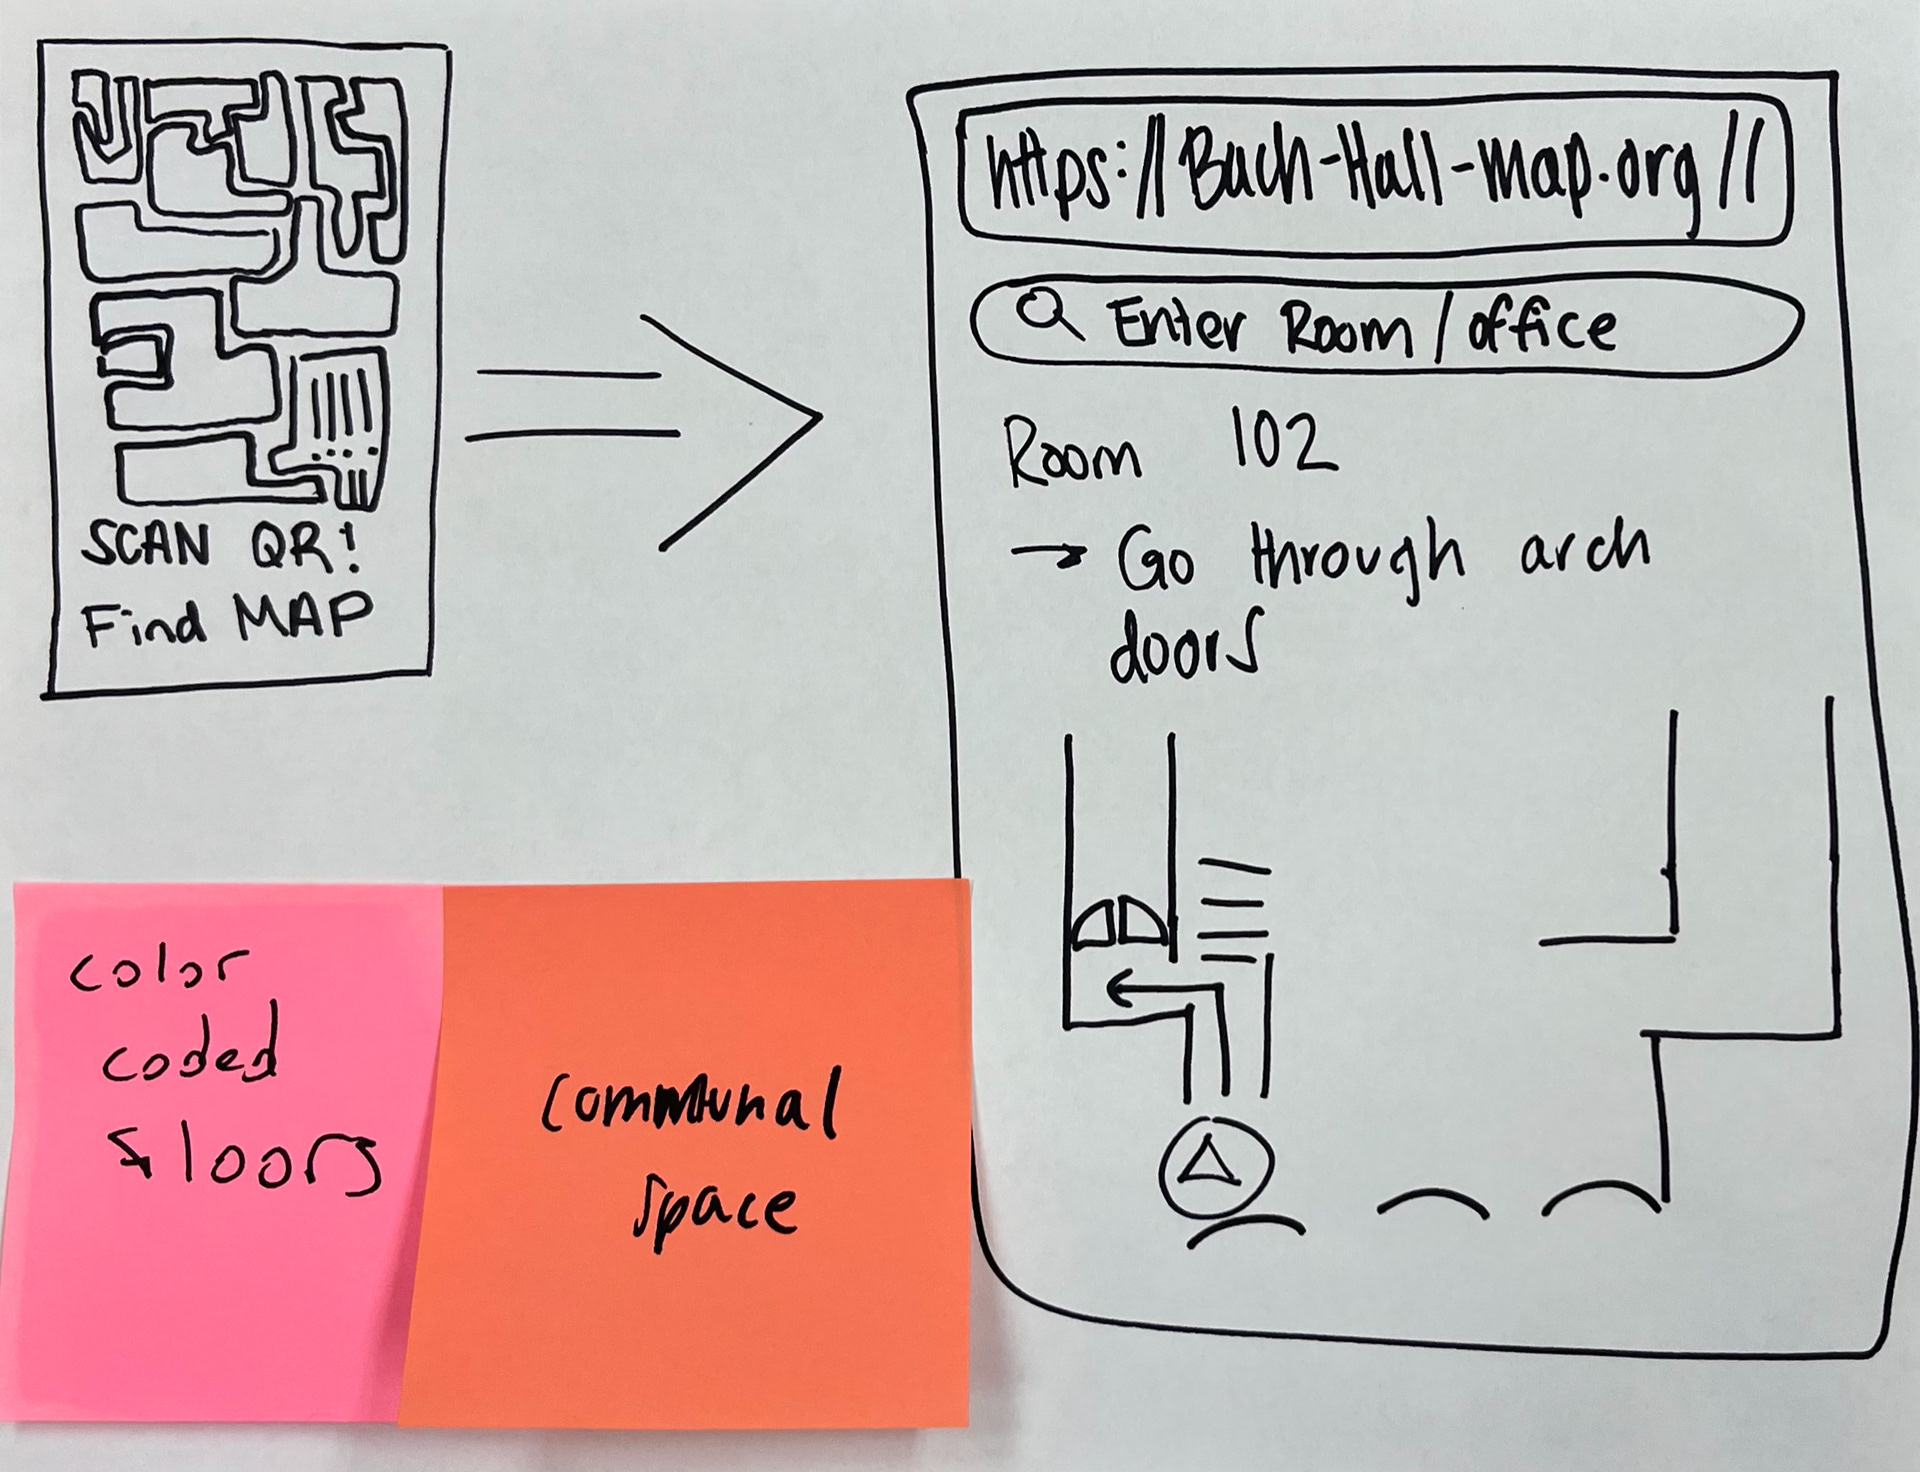 SCAN QR!
Find MAP
https://Bach-Hall-map.org//
Enter Room/office
Room 102
→ Go through arch
doors
color
coded
floors
communal
space